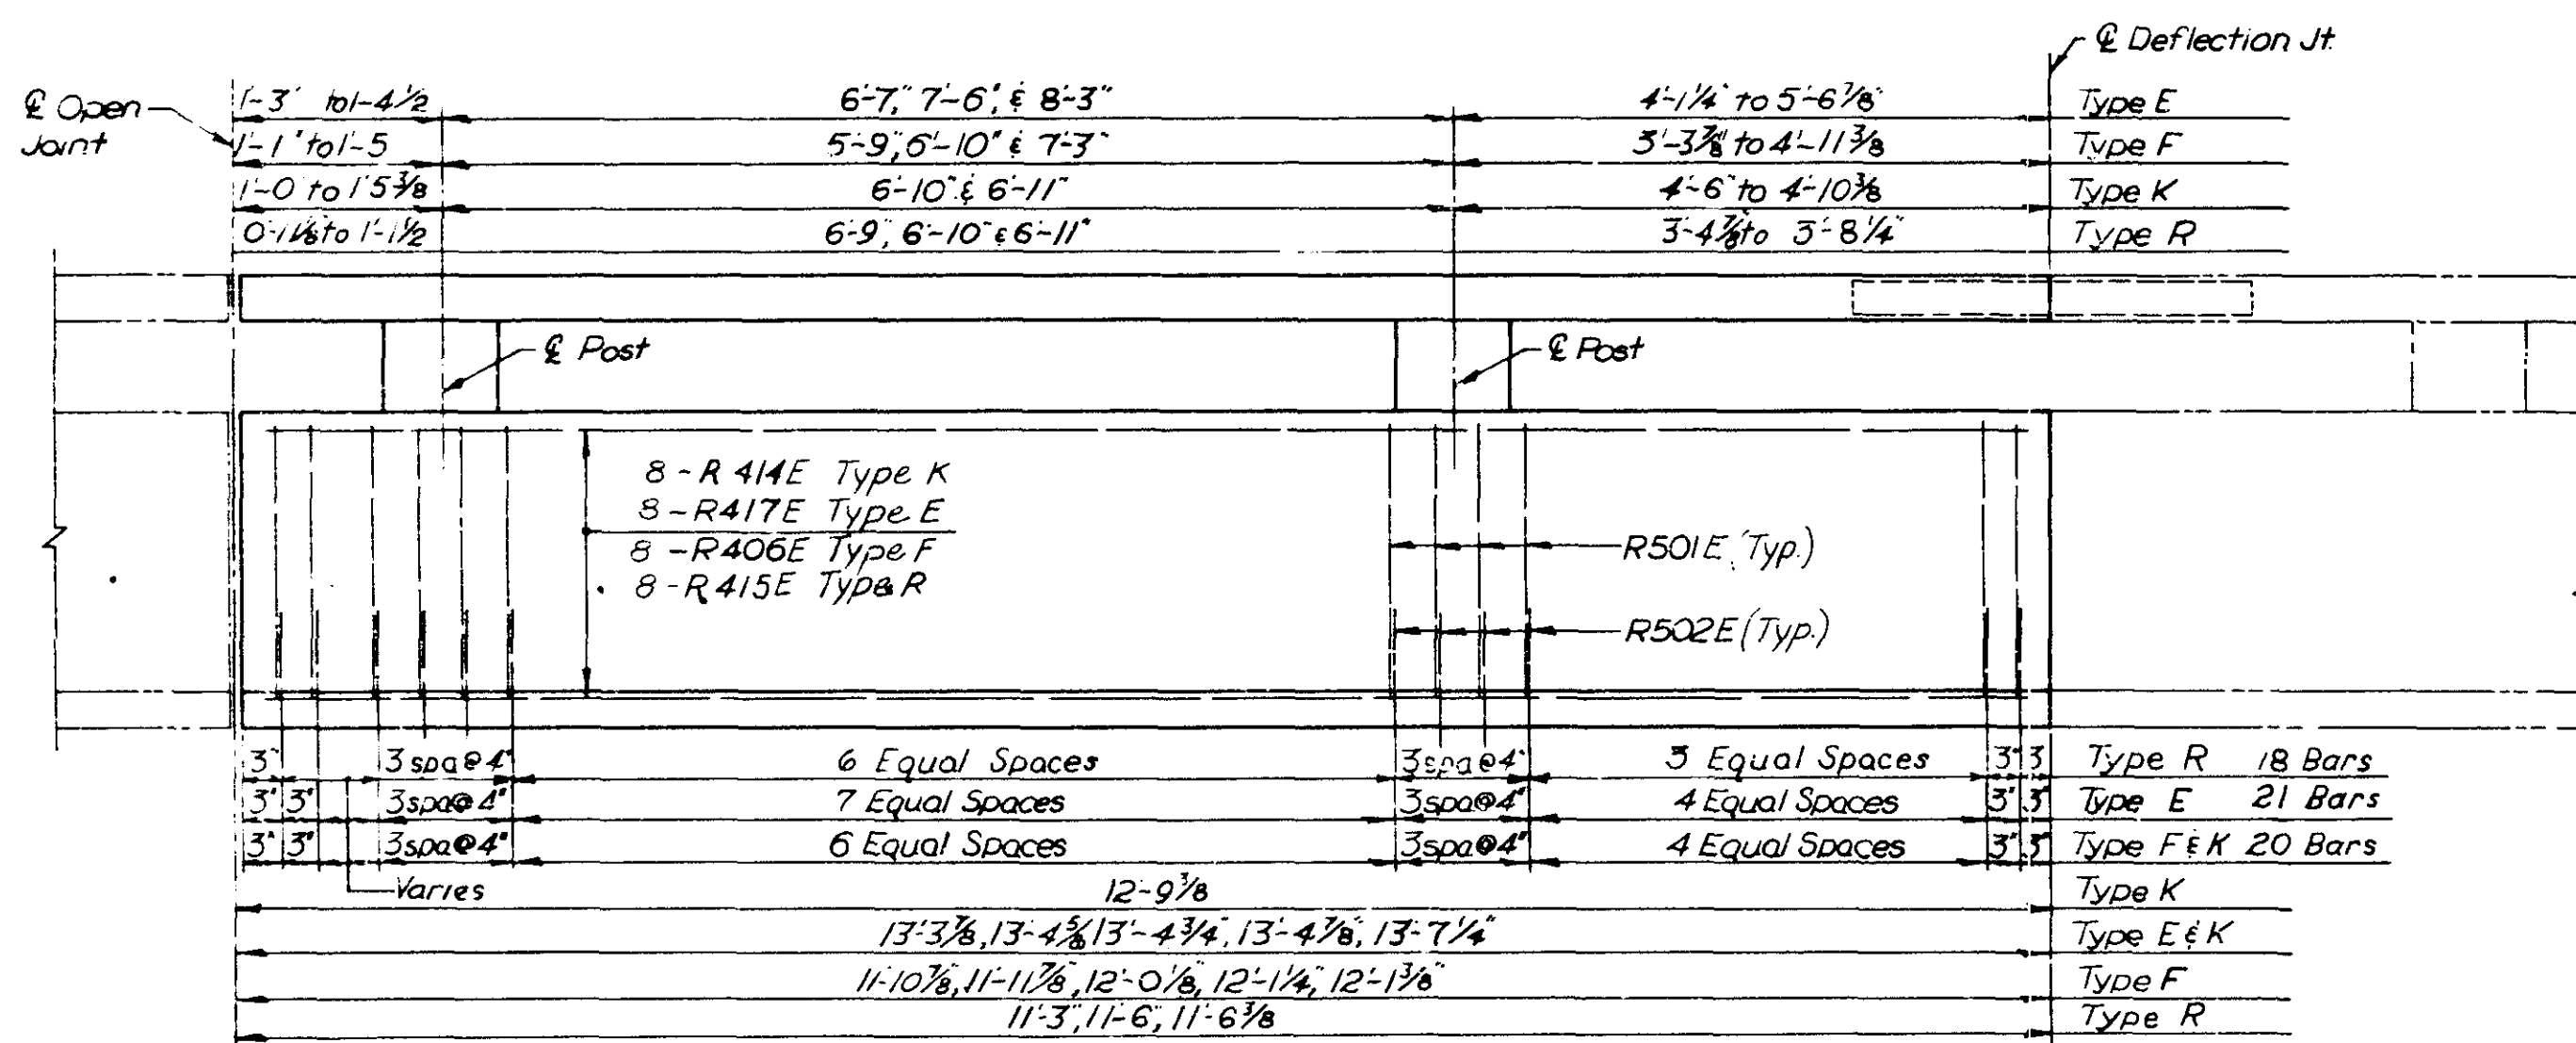 ℄ Deflection Jt.
℄ Open
Joint
1'-3" to 1'-4 1/2 6'-7", 7'-6", & 8'-3" 4'-1 1/4" to 5'-6 7/8" Type E
1'-1" to 1'-5 5'-9", 6'-10" & 7'-3" 3'-3 7/8" to 4'-11 3/8 Type F
1'-0 to 1'5 3/8 6'-10" & 6'-11" 4'-6" to 4'-10 3/8 Type K
0'-11 1/8 to 1'-1 1/2 6'-9", 6'-10" & 6'-11" 3'-4 7/8" to 3'-8 1/4" Type R
℄ Post ℄ Post
8 - R 414E Type K
8 - R417E Type E
8 - R406E Type F
8 - R415E Type R
R501E (Typ.)
R502E (Typ.)
3" 3 spa @ 4" 6 Equal Spaces 3 spa @ 4" 3 Equal Spaces 3" 3 Type R 18 Bars
3" 3" 3 spa @ 4" 7 Equal Spaces 3 spa @ 4" 4 Equal Spaces 3" 3" Type E 21 Bars
3" 3" 3 spa @ 4" 6 Equal Spaces 3 spa @ 4" 4 Equal Spaces 3" 3" Type F & K 20 Bars
Varies 12'-9 3/8 Type K
13'-3 7/8, 13'-4 5/8, 13'-4 3/4", 13'-4 7/8", 13'-7 1/4" Type E & K
11'-10 7/8", 11'-11 7/8", 12'-0 1/8", 12'-1 1/4", 12'-1 3/8" Type F
11'-3", 11'-6", 11'-6 3/8 Type R